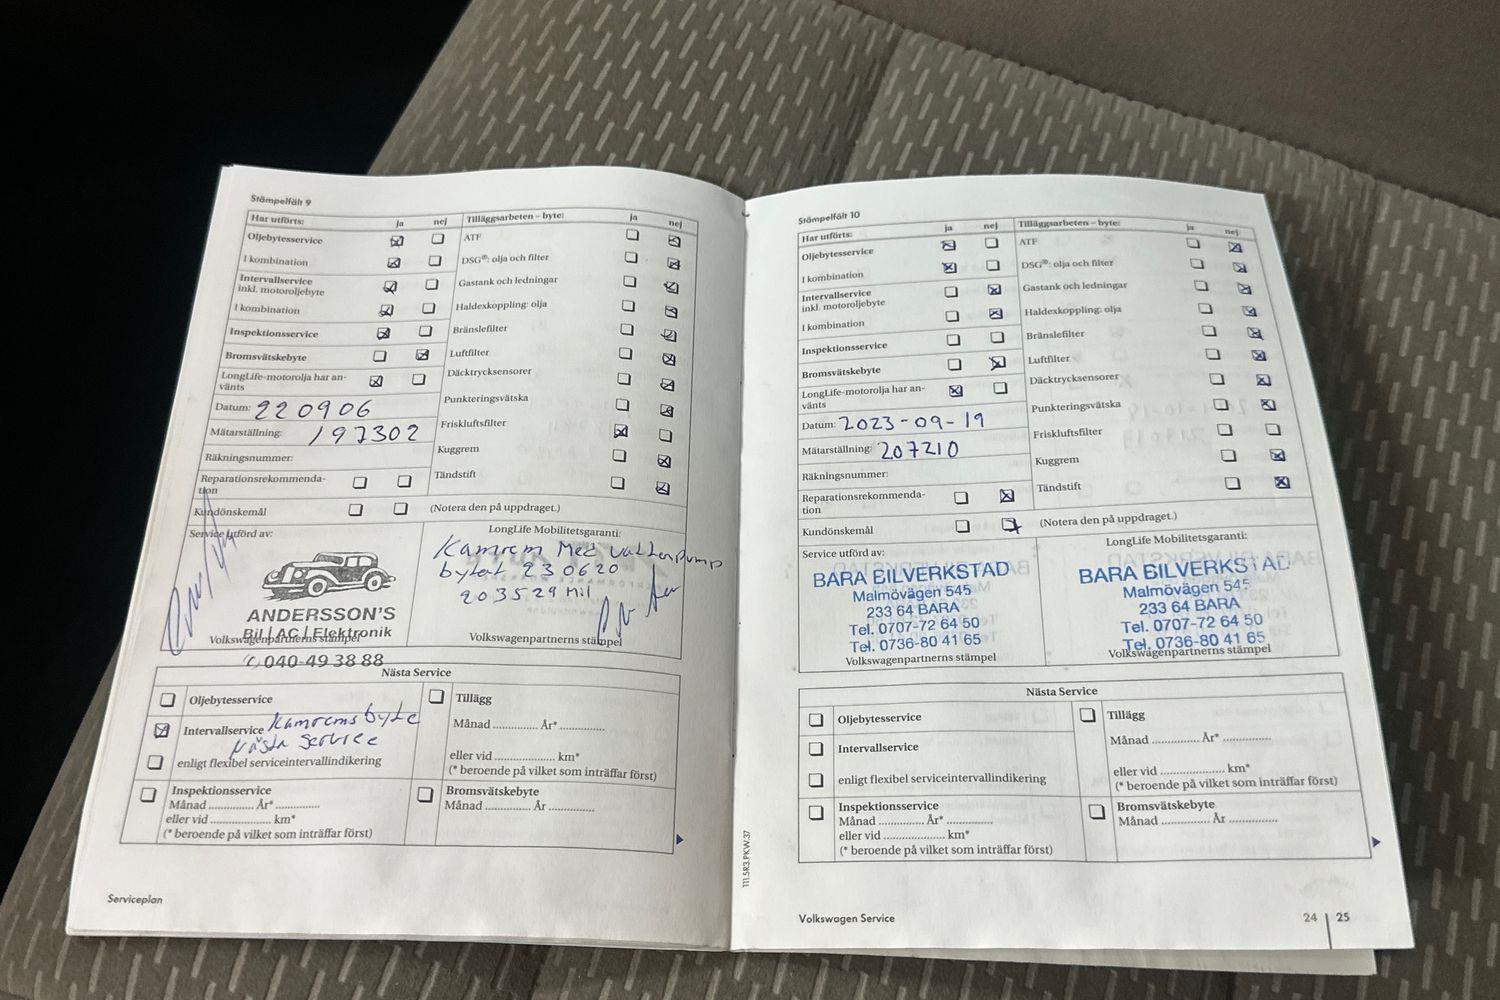 Stämpelfält 9
Har utförts: ja nej
Oljebytesservice
I kombination
Intervallservice
inkl. motoroljebyte
I kombination
Inspektionsservice
Bromsvätskebyte
LongLife-motorolja har an-
vänts
Datum: 220906
Mätarställning: 197302
Räkningsnummer:
Reparationsrekommenda-
tion
Kundönskemål
Tilläggsarbeten – byte: ja nej
ATF
DSG®: olja och filter
Gastank och ledningar
Haldexkoppling: olja
Bränslefilter
Luftfilter
Däcktrycksensorer
Punkteringsvätska
Friskluftsfilter
Kuggrem
Tändstift
(Notera den på uppdraget.)
Service utförd av:
ANDERSSON'S
Bil | AC | Elektronik
Volkswagenpartnerns stämpel
✆ 040-49 38 88
LongLife Mobilitetsgaranti:
Kamrem Med vattenpump
bytat 230620
203529 Mil
Volkswagenpartnerns stämpel
Nästa Service
Oljebytesservice
Intervallservice Kamremsbyte
Nästa service
enligt flexibel serviceintervallindikering
Tillägg
Månad ............. År* .............
eller vid .................... km*
(* beroende på vilket som inträffar först)
Inspektionsservice
Månad ............. År* .............
eller vid .................... km*
(* beroende på vilket som inträffar först)
Bromsvätskebyte
Månad ............. År .............
Serviceplan
Stämpelfält 10
Har utförts: ja nej
Oljebytesservice
I kombination
Intervallservice
inkl. motoroljebyte
I kombination
Inspektionsservice
Bromsvätskebyte
LongLife-motorolja har an-
vänts
Datum: 2023-09-19
Mätarställning: 207210
Räkningsnummer:
Reparationsrekommenda-
tion
Kundönskemål
Tilläggsarbeten – byte: ja nej
ATF
DSG®: olja och filter
Gastank och ledningar
Haldexkoppling: olja
Bränslefilter
Luftfilter
Däcktrycksensorer
Punkteringsvätska
Friskluftsfilter
Kuggrem
Tändstift
(Notera den på uppdraget.)
Service utförd av:
BARA BILVERKSTAD
Malmövägen 545
233 64 BARA
Tel. 0707-72 64 50
Tel. 0736-80 41 65
Volkswagenpartnerns stämpel
LongLife Mobilitetsgaranti:
BARA BILVERKSTAD
Malmövägen 545
233 64 BARA
Tel. 0707-72 64 50
Tel. 0736-80 41 65
Volkswagenpartnerns stämpel
Nästa Service
Oljebytesservice
Intervallservice
enligt flexibel serviceintervallindikering
Tillägg
Månad ............. År* .............
eller vid .................... km*
(* beroende på vilket som inträffar först)
Inspektionsservice
Månad ............. År* .............
eller vid .................... km*
(* beroende på vilket som inträffar först)
Bromsvätskebyte
Månad ............. År .............
111.5R3.PKW.37
Volkswagen Service
24 | 25